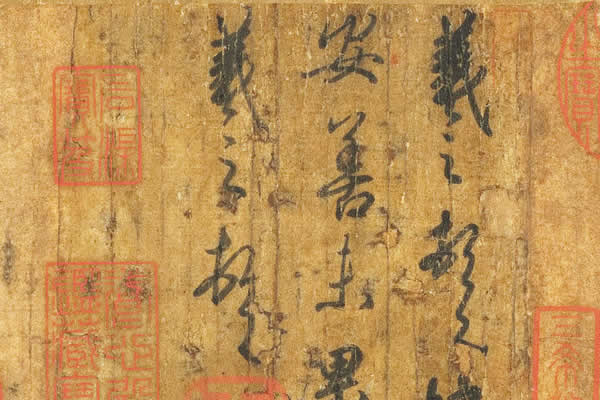 羲之頓首
安善未果
羲之頓首
三希